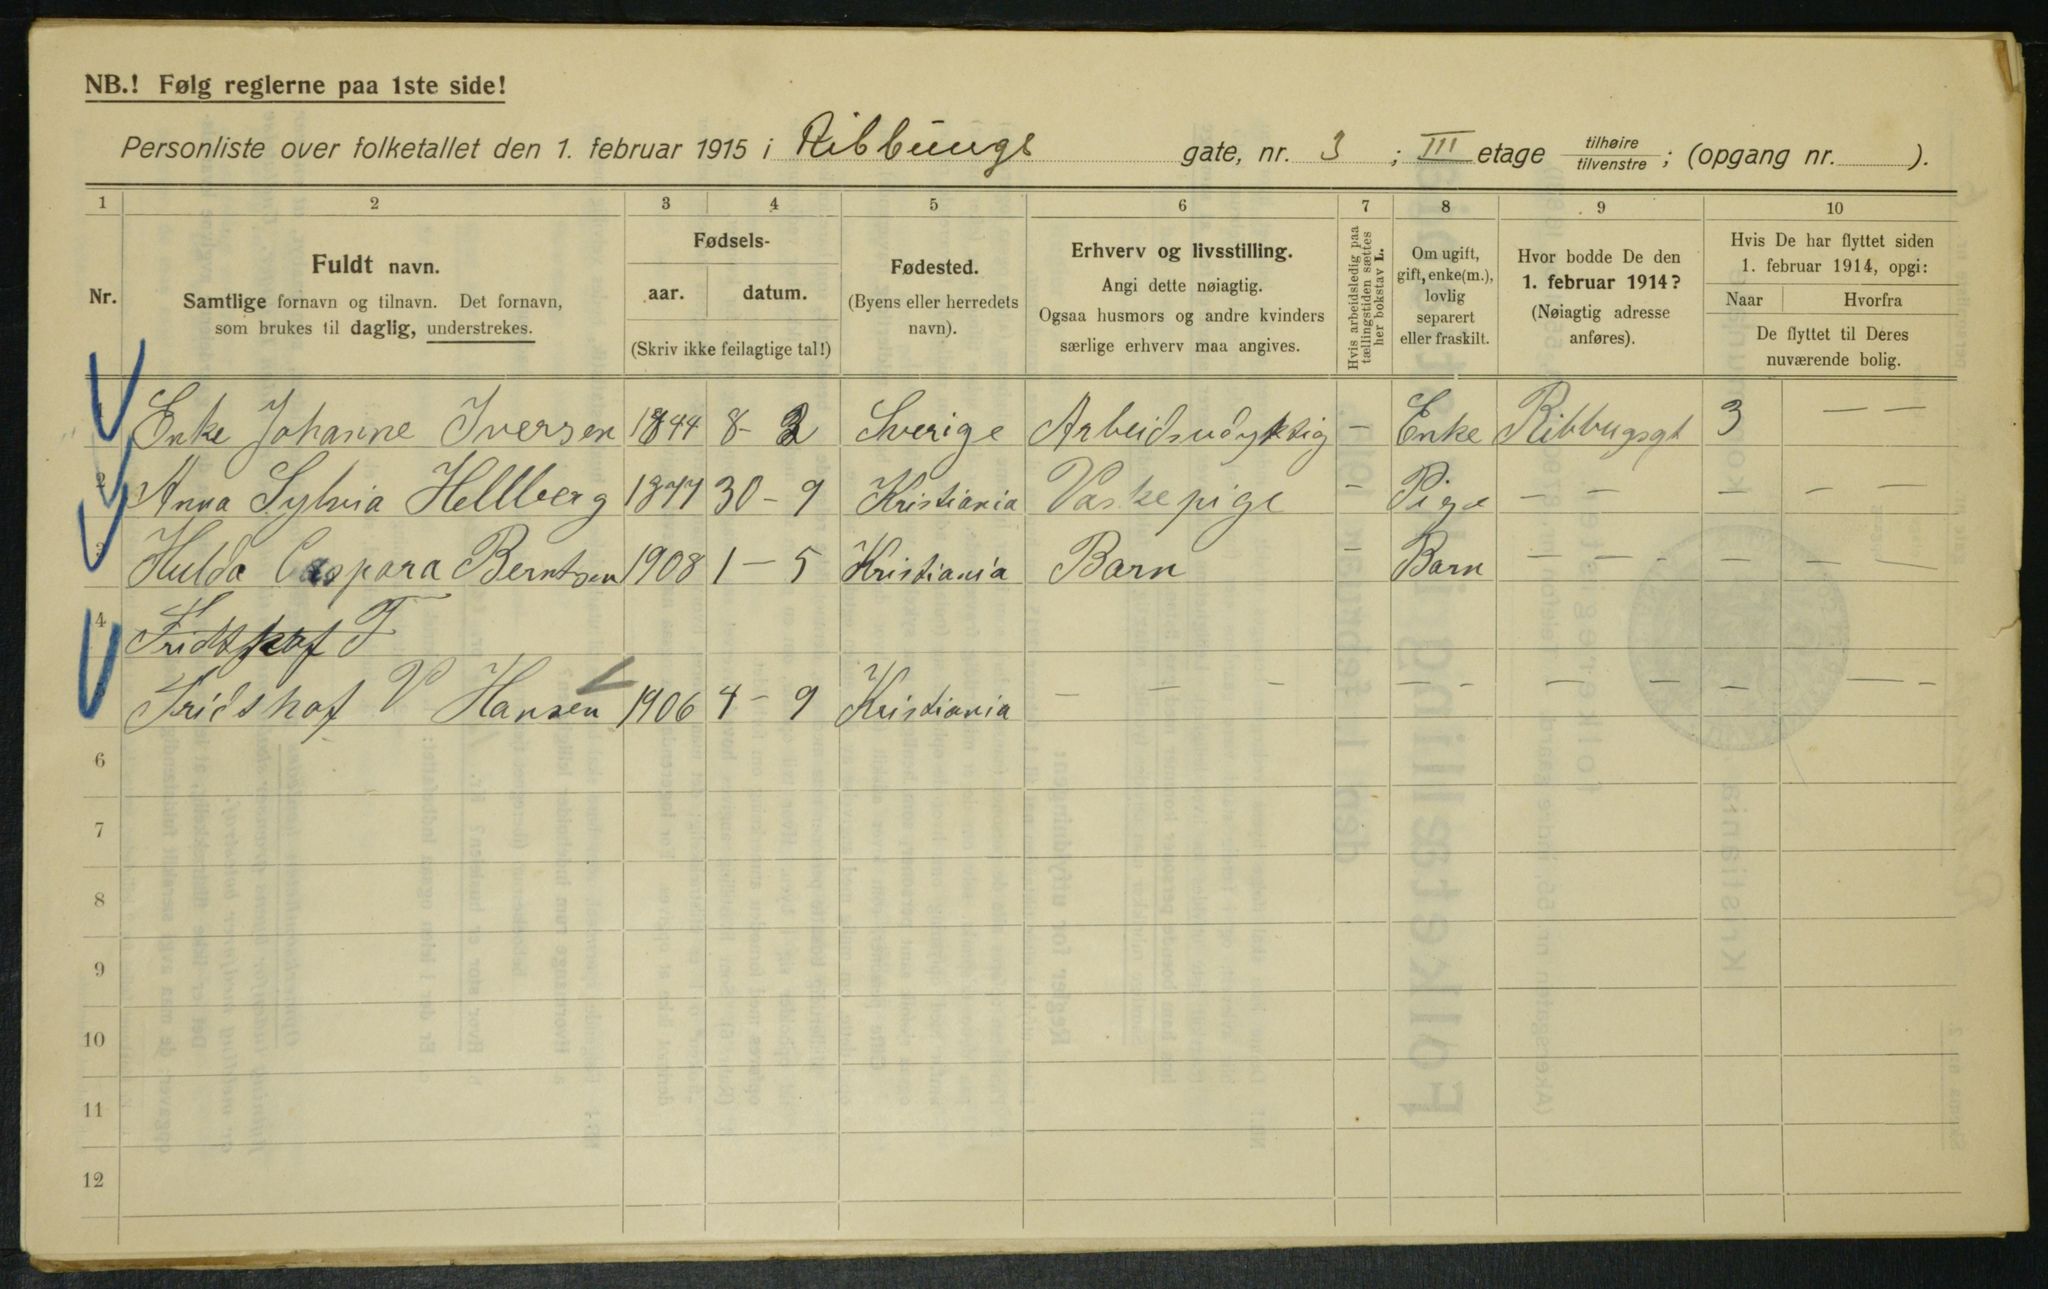 NB.! Følg reglerne paa 1ste side!
Personliste over folketallet den 1. februar 1915 i Ribbungs gate, nr. 3 ; III etage tilhøire tilvenstre ; (opgang nr. ).
1 2 3 4 5 6 7 8 9 10
Nr.
Fuldt navn.
Samtlige fornavn og tilnavn. Det fornavn,
som brukes til daglig, understrekes.
Fødsels-
aar. datum.
(Skriv ikke feilagtige tal!)
Fødested.
(Byens eller herredets
navn).
Erhverv og livsstilling.
Angi dette nøiagtig.
Ogsaa husmors og andre kvinders
særlige erhverv maa angives.
Hvis arbeidsledig paa
tællingstiden sættes
her bokstav L.
Om ugift,
gift, enke(m.),
lovlig
separert
eller fraskilt.
Hvor bodde De den
1. februar 1914?
(Nøiagtig adresse
anføres).
Hvis De har flyttet siden
1. februar 1914, opgi:
Naar Hvorfra
De flyttet til Deres
nuværende bolig.
1 Enke Johanne Iversen 1844 8 - 2 Sverige Arbeidsudyktig - Enke Ribbugsgt 3 — —
2 Anna Sylvia Hellberg 1877 30 - 9 Kristiania Vaskepige - Pige - - - - -
3 Hulda Caspara Berntsen 1908 1 - 5 Kristiania Barn - Barn - - - - - -
4 Fridtjhof F
Fridshof V Hansen 1906 4 - 9 Kristiania - - - - - - - - — -
6
7
8
9
10
11
12